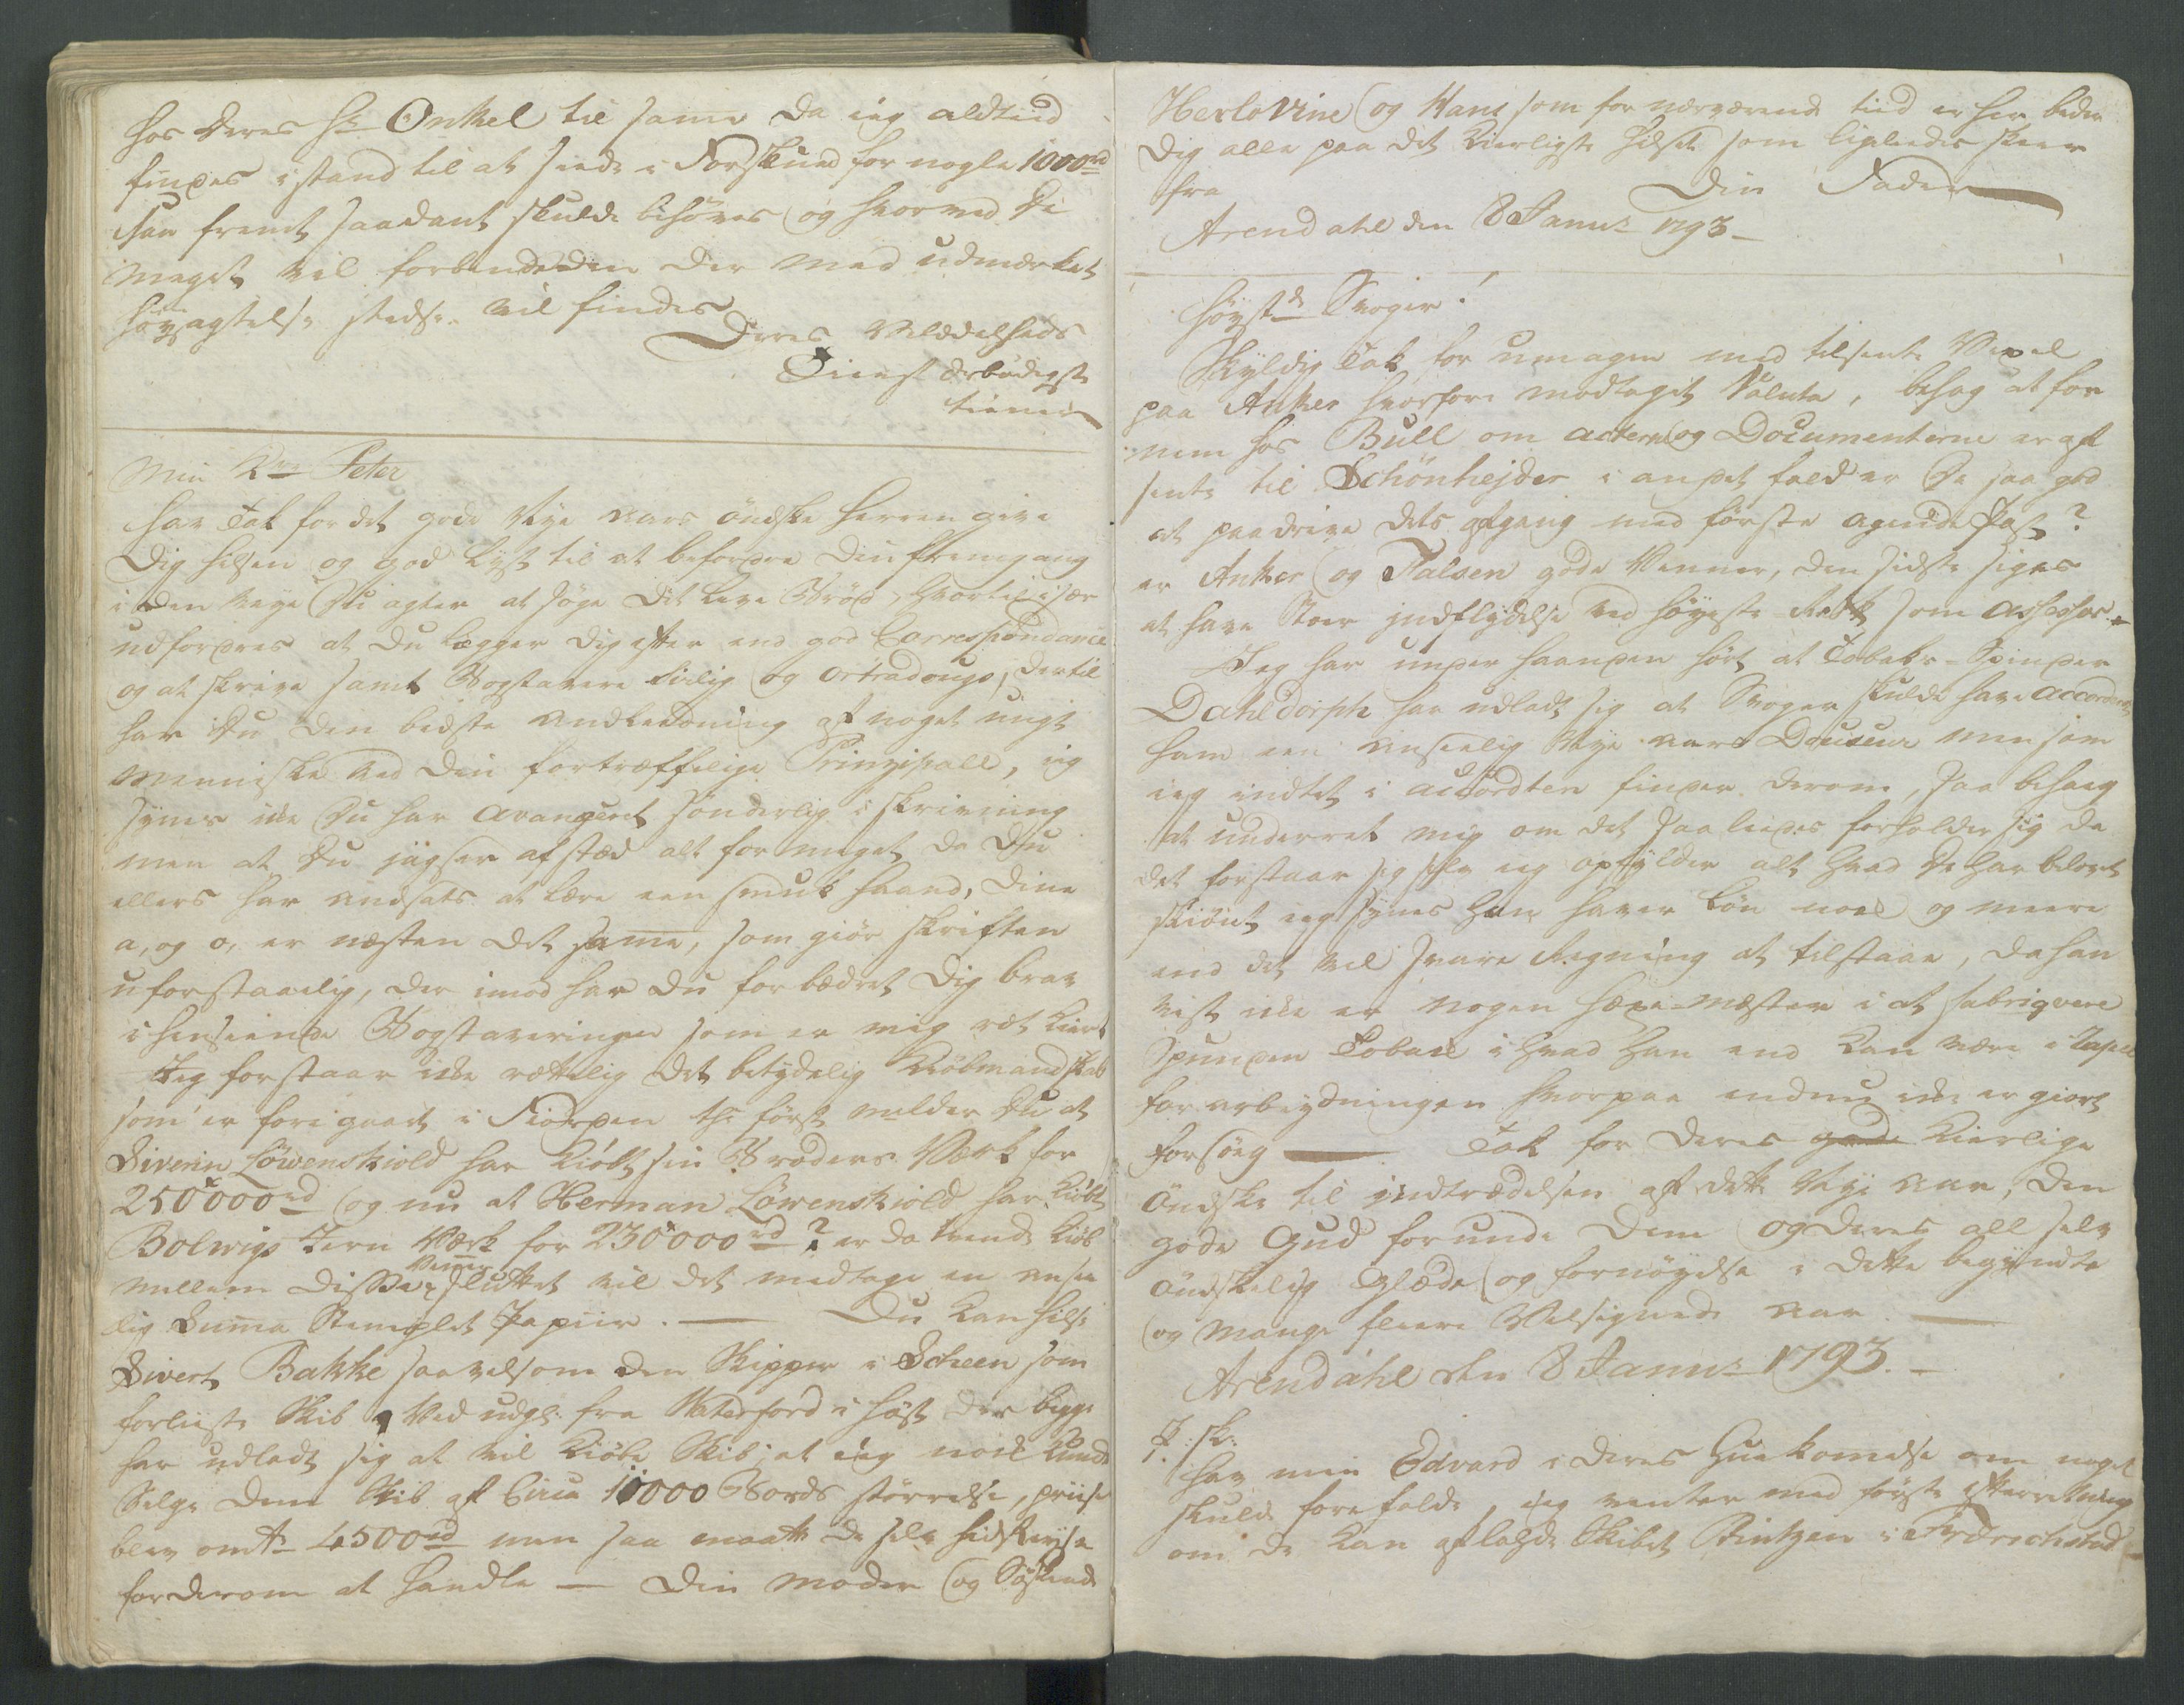 hos Deres Hr Onkel til samme da ieg altiid
finder i stand til at siide i Forskud for nogle 1000rd
saa fremt saadant skulde behøves og hvorved De
meget vil forbinde den der med udmerket
høyagtelse stedse vil findes
Deres Velædelheds
Tienst ærbødigste
tiener
Min Kre Peter
Hav Tak for det gode Nye Aars öndske Herren give
Dig Hilsen og god Lyst til at befordre Din fremgang
i den veye Du agter at søge Dit Leve Brød, hvortil især
udfordres at Du lægger Dig efter end god Correspondance
og at skrive samt Bogstavere tirlig og ortradougs, dertil
har Du den bedste Andledning af noget ungt
Menniske ved Din fortræffelige Prinzipall, ieg
synes ikke Du har avangeret sönderlig i skrivning
men at Du jagser afsted alt for meget da Du
ellers har Andsats at lære een smuk haand, Dine
a, og o, er næsten det samme, som giør skriften
uforstaaelig, der imod har Du forbædret Dig brav
i henseende Bogstaveringen som er mig ret Kiert
Jeg forstaar ikke rættelig det betydelig Kiöbmandskab
som er foregaaet i Fiorden thi først melder Du at
Siverin Löwenskiold har kiöbt sin Broders Værk for
250000rd og nu at Herman Löwenskiold har kiöbt
Bolwigs Jern Værk for 230000rd? er da tvende Kiöb
mellem disse Venner sluttet vil det medtage en anseelig
Summa Stemplet Papiir. — Du kan hilse
Sivert Bakke saavelsom den Skipper i Scheen som
forliiste Skib ved udgl: fra Waterford i høst der begge
har udladt sig at vil Kiöbe Skib, at ieg nok kunde
Selge dem Skib af Circa 11000 Bords størrelse, priisen
blev omtr 4500rd men saa maatte de selv hidReyse
for derom at handle — Din moder og Søskende
Herlovine og Hans som for nærværende tiid er her beder
Dig alle paa det Kierligste hilset som ligeledes skeer
fra
Din Fader
Arendahl den 8 Janur 1793 —
Høystde Svoger!
Skyldig Tak for umagen med tilsendte Vexel
paa Anker hvorfore modtaget Valuta, behag at for
nem hos Bull om acterne og Documenterne er af
sendte til Schönhejder i andet fald er De saa god
at paadrive dets afgang med første agende Post?
er Anker og Falsen gode Venner, den sidste siges
at have Stor jndflydelse ved høyeste Rætt som Assessor. —
Jeg har under haanden hørt at Tobaks-Spinder
Dahldorph har udladt sig at Svoger skulde have accorderet
ham een anseelig Nye aars Douceur men som
ieg indtet i accordten finder derom, saa behag
at underret mig om det saaledes forholder sig da
det forstaar sig selv ieg opfylder alt hvad De har belovet
skiönt ieg synes han haver Løn nok og meere
end det vel svare Regning at tilstaae, da han
vist ikke er nogen Hexe-mæster i at fabriqvere
Spunden Toback i hvad han end kan være i
forarbeydningen hvorpaa endnu ikke er giort
forsöeg — Tak for deres gode Kierlige
öndske til jndtrædelsen af dette Nye Aar, den
gode Gud forunde dem og deres all selv
öndskelig Glæde og fornöyelse i dette begyndte
og mange fleere Velsignede Aar —
Arendahl den 8 Janur 1793. —
P: sk:
hav min Edvard i deres Hukomelse om noget
skulde forefalde, ieg venter med første efterretning
om De kan aflasde Skibet Printzen i Fredrechstad —